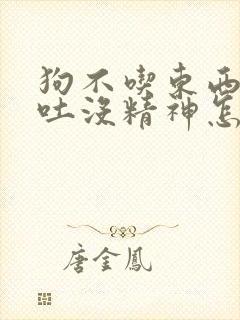 狗不喫東西
吐沒精神怎
唐金鳳